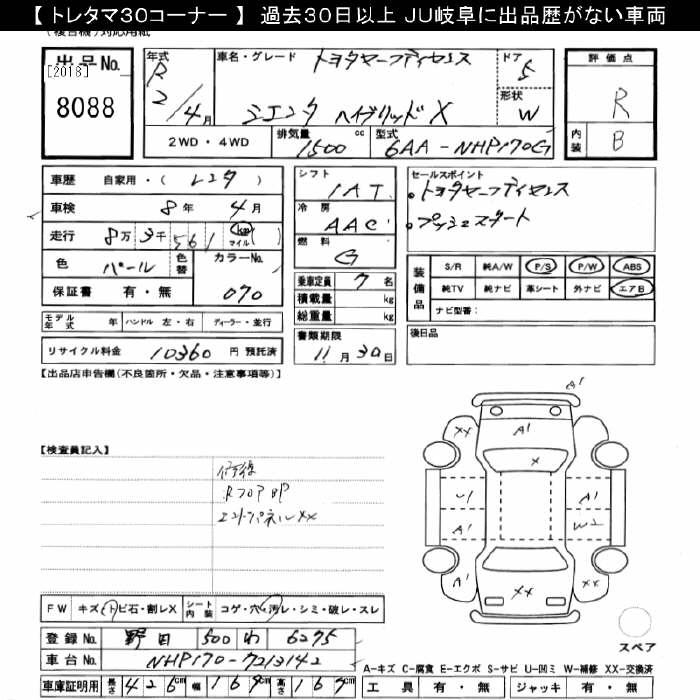 【 トレタマ30コーナー 】 過去30日以上 JU岐阜に出品歴がない車両
出品No.
[2018]
8088
年式 R 2/4月
車名・グレード トヨタセーフティセンス
シエンタ ハイブリッドX
ドア 5
形状 W
2WD ・ 4WD
排気量 1500 cc
型式 6AA-NHP170G
評価点
R
内装 B
車歴 自家用・( レンタ )
車検 8年 4月
走行 8万 3千 561 km マイル( )
色 パール 色替 カラーNo. 070
保証書 有・無
モデル年式 年 ハンドル 左・右 ディーラー・並行
リサイクル料金 10360 円 預託済
シフト IAT
冷房 AAC
燃料 G
乗車定員 7 名
積載量 kg
総重量 kg
書類期限
11月30日
セールスポイント
・トヨタセーフティセンス
・プッシュスタート
装備品
S/R 純A/W P/S P/W ABS
純TV 純ナビ 革シート 外ナビ エアB
ナビ型番:
後日品
【出品店申告欄(不良箇所・欠品・注意事項等)】
【検査員記入】
修復
RフロアSP
エンドパネルXX
A1
XX A1
X
U1 A1
A1 W2
A1 A1
XX
スペア
FW キズ・トビ石・割レX シート内装 コゲ・穴・汚レ・シミ・破レ・スレ
登録No. 野田 500 わ 6275
車台No. NHP170-7213142
車庫証明用 長さ 426cm 幅 169cm 高さ 167cm
A-キズ C-腐食 E-エクボ S-サビ U-凹ミ W-補修 XX-交換済
工具 有・無 ジャッキ 有・無